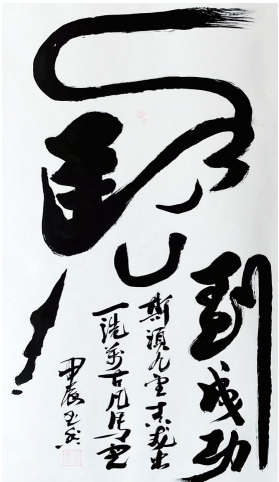 馬
到成功
斯須九重真龍出
一洗萬古凡馬空
甲辰